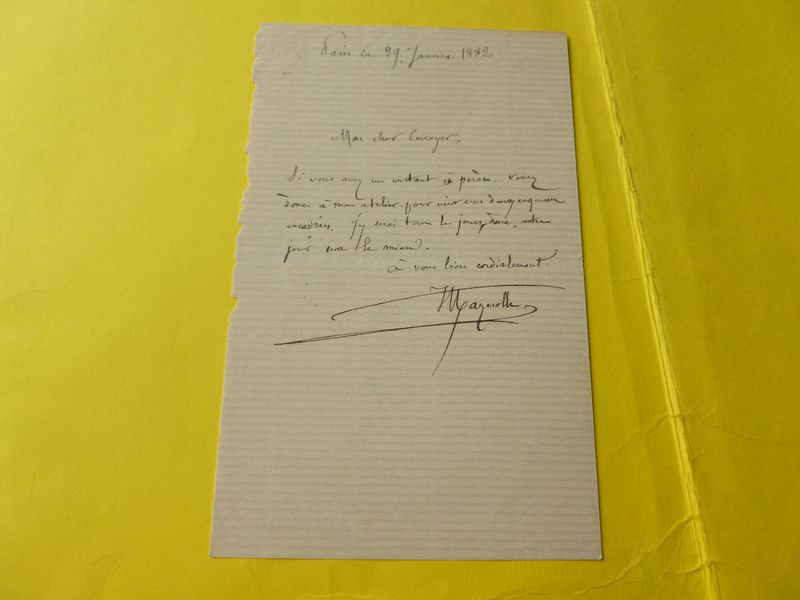 Paris ce 29 Janvier 1882
Mon cher Corroyer,
Si vous avez un instant à perdre. Venez
donc à mon atelier pour voir vos deux
encadrées. J'y serai tous les jours donc, votre
jour sera le mien.
à vous bien cordialement.
Mazerolle